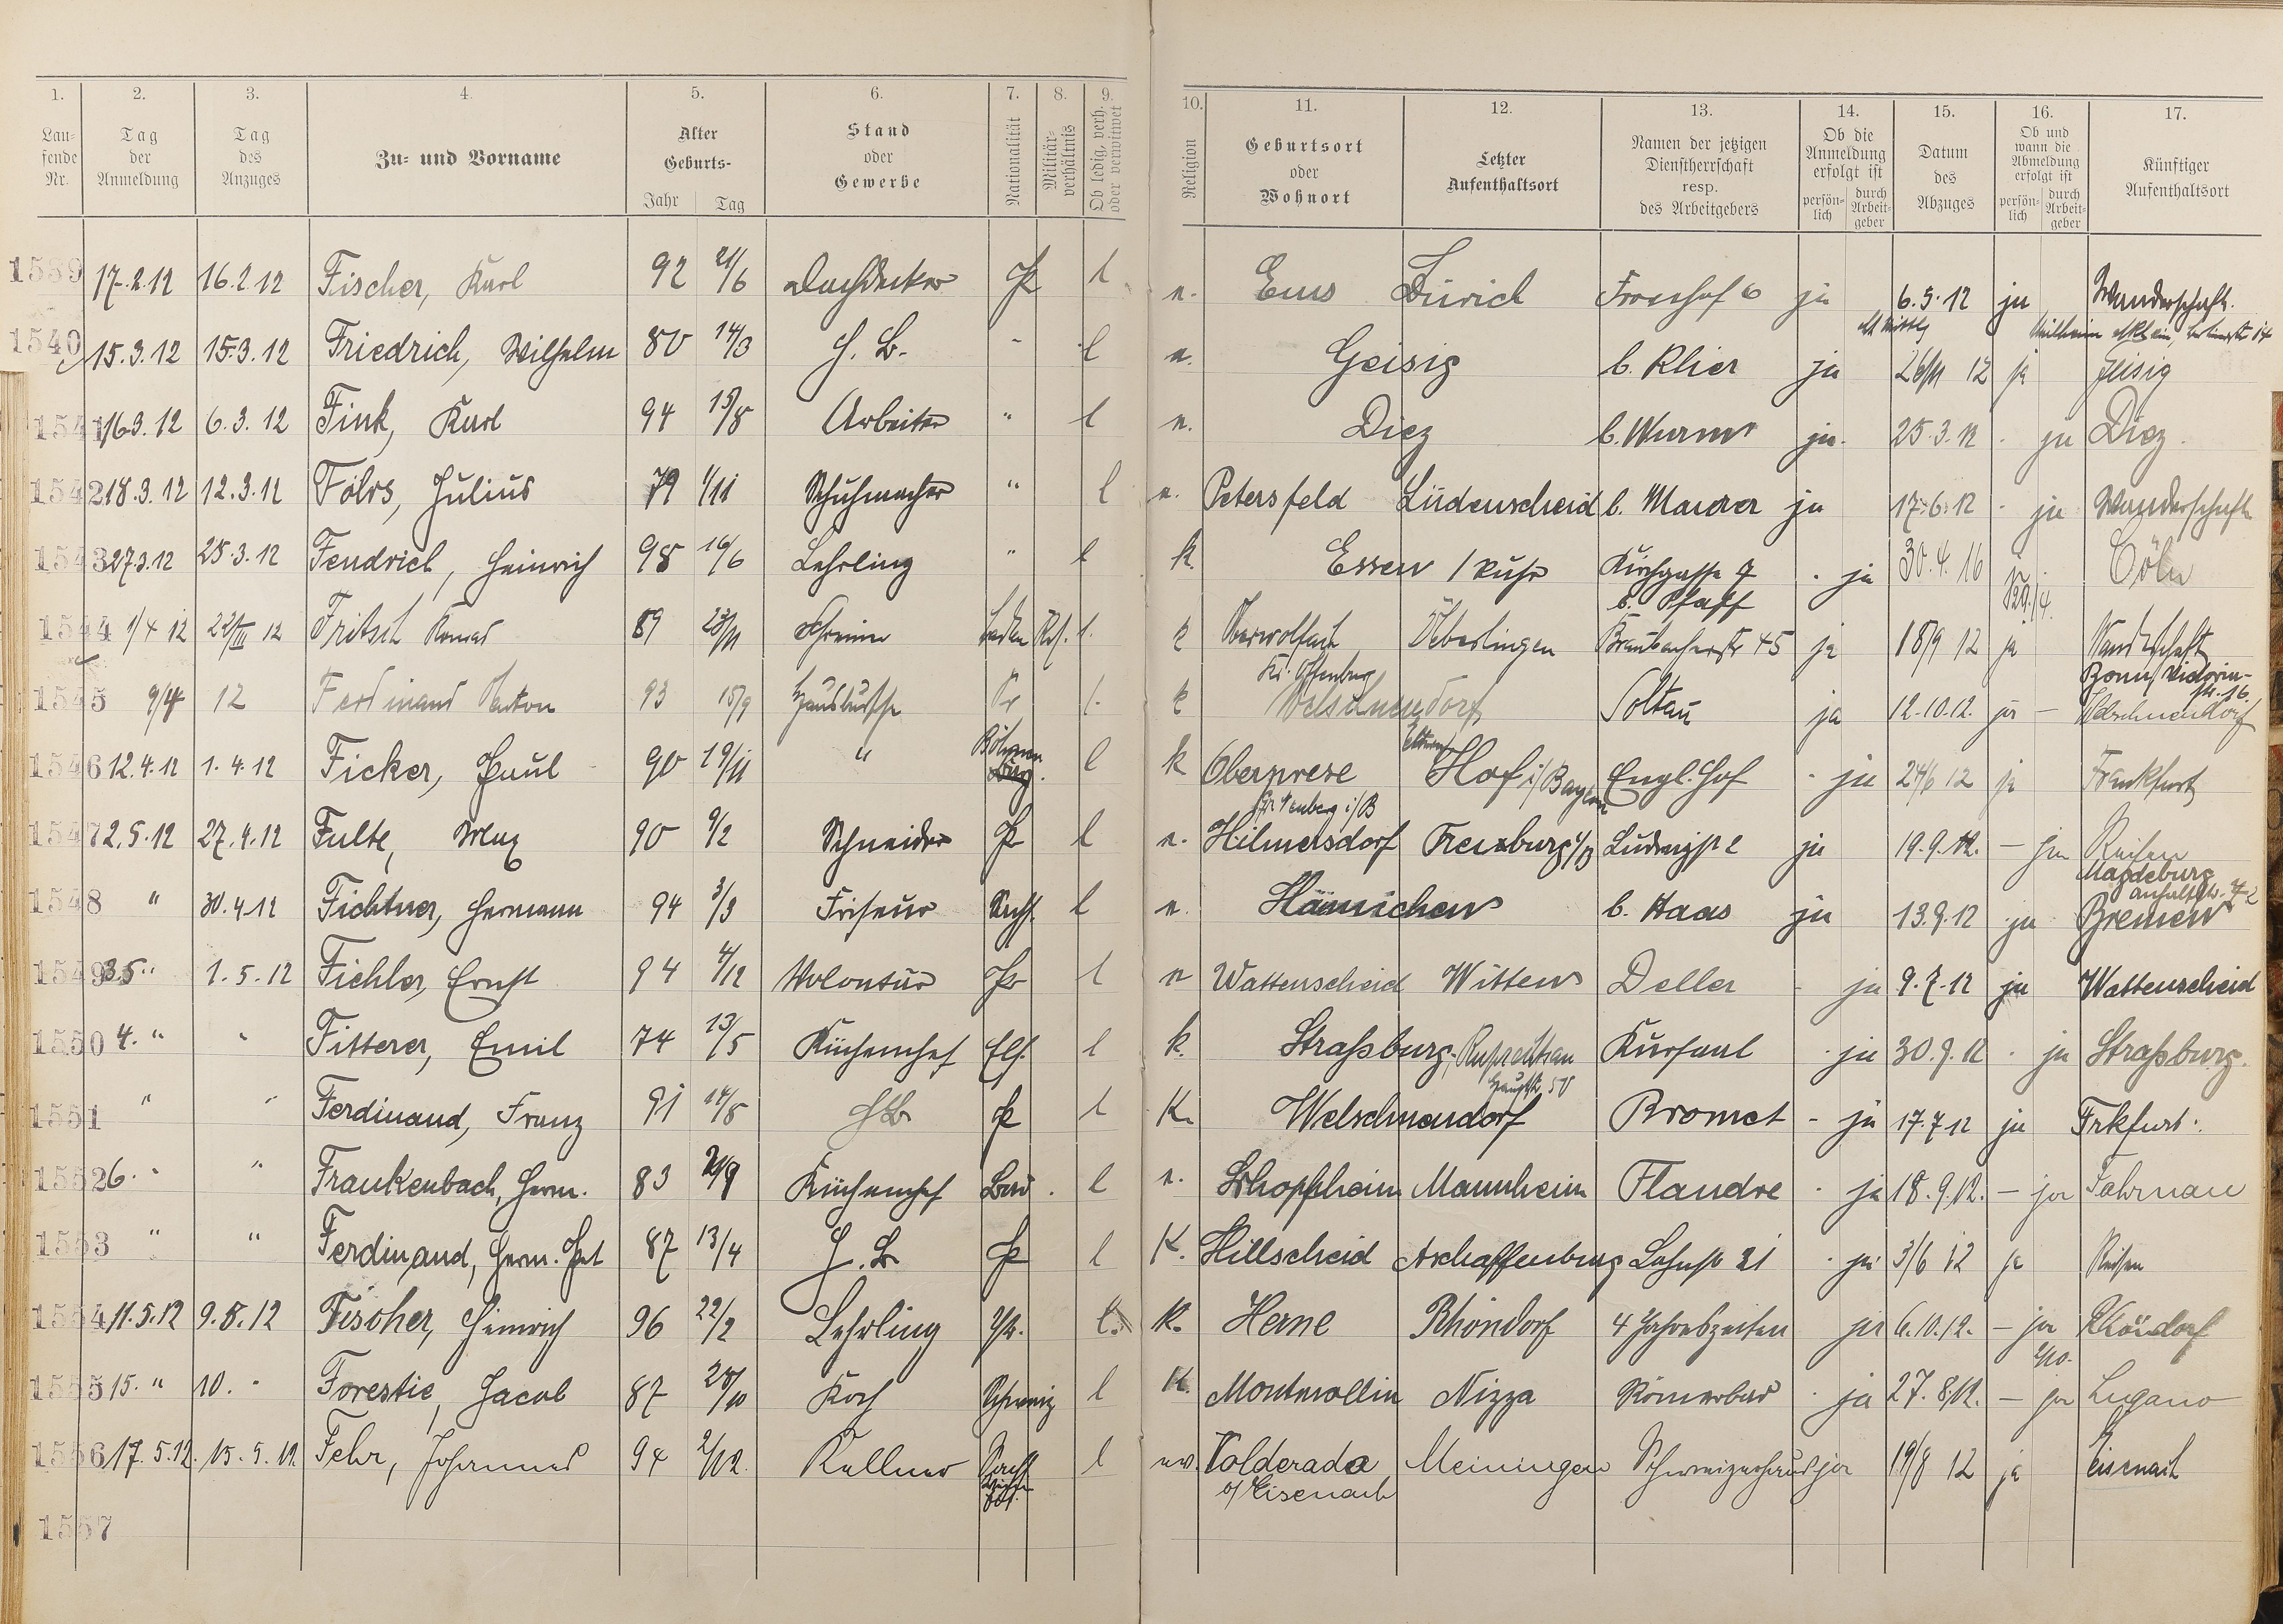 1. 2. 3. 4. 5. 6. 7. 8. 9. 10. 11. 12. 13. 14. 15. 16. 17.
Laufende Nr. Tag der Anmeldung Tag des Anzuges Zu- und Vorname Alter Geburts- Jahr Tag Stand oder Gewerbe Nationalität Militärverhältnis Ob ledig, verh. oder verwitwet Religion Geburtsort oder Wohnort Letzter Aufenthaltsort Namen der jetzigen Dienstherrschaft resp. des Arbeitgebers Ob die Anmeldung erfolgt ist persönlich durch Arbeitgeber Datum des Abzuges Ob und wann die Abmeldung erfolgt ist persönlich durch Arbeitgeber Künftiger Aufenthaltsort
1539 17.2.12 16.2.12 Fischer, Karl 92 21/6 Dachdecker Pr l e. Ems Zürich Fronhof 6 ja 6.5.12 ja Wanderschaft.
1540 15.3.12 15.3.12 Friedrich, Wilhelm 80 14/3 H. B. " l e. Geisig b. Klier ja 26/11 12 ja Geisig
1541 16.3.12 6.3.12 Fink, Karl 94 15/8 Arbeiter " l e. Diez b. Wurm ja. 25.3.12 - ja Diez.
1542 18.3.12 12.3.12 Fölrs, Julius 79 1/11 Schuhmacher " l e. Petersfeld Lüdenscheid b. Maurer ja 17.6.12 - ja Wanderschaft
1543 27.3.12 25.3.12 Fendrich, Heinrich 98 16/6 Lehrling " l k. Essen / Ruhr Kirchgasse 7 b. Pfaff - ja 30.4.16 Cöln
1544 1/4 12 22/III 12 Fritsch Konrad 89 Schreiner Baden l. k Oberwolfach Kr. Offenburg Überlingen Braubacherstr 45 ja 18/9 12 ja Wanderschaft
Bonn, Victoriastr. 16
1545 9/4 12 Ferdinand Anton 93 15/9 Hausbursche Pr l. k Welschneudorf Soltau ja 12.10.12. ja — Welschneudorf
1546 12.4.12 1.4.12 Ficker, Paul 90 19/11 " Böhmen l k Hof i/Bayern Engl. Hof - ja 24/6 12 ja Frankfurt
1547 2.5.12 27.4.12 Fulte, Max 90 9/2 Schneider Pr l e. Hilmersdorf Freiburg i/B Ludwigstr 2 ja 19.9.12. — ja Reisen
Magdeburg
1548 " 30.4.12 Fichtner, Hermann 94 3/3 Friseur Sachs. l e. Hainichen b. Haas ja 13.9.12 ja Bremen
1549 3.5." 1.5.12 Fichler, Ernst 94 4/12 Volontär Pr l e Wattenscheid Witten Deller - ja 9.7.12 ja Wattenscheid
1550 4. " " Fitterer, Emil 74 13/5 Küchenchef Els. l k. Straßburg-Ruprechtsau Kursaal - ja 30.9.12 - ja Straßburg.
1551 " " Ferdinand, Franz 91 14/8 HB Pr l K. Welschneudorf Bromet - ja 17.7.12 ja Frkfurt.
1552 6. " " Frankenbach, Herm. 83 Küchenchef Bad. l e. Schopfheim Mannheim Flandre - ja 18.9.12. — ja Fahrnau
1553 " " Ferdinand, Herm. Jos. 87 13/4 H. B Pr l K. Hillscheid Aschaffenburg Lahnstr 21 - ja 3/6 12 ja Reisen
1554 11.5.12 9.5.12 Fischer, Heinrich 96 22/2 Lehrling Pr. l. K. Herne Rhöndorf 4 Jahreszeiten ja 6.10.12. — ja Rhöndorf
1555 15. " 10. " Forestie, Jacob 87 28/10 Koch Schweiz l K. Montmollin Nizza Römerbad - ja 27.8.12. — ja Lugano
1556 17.5.12. 15.5.12. Fehr, Johannes 94 2/12. Kellner l ev. Volderada b/Eisenach Meiningen Schweizerhaus ja 19/8 12 ja Eisenach
1557